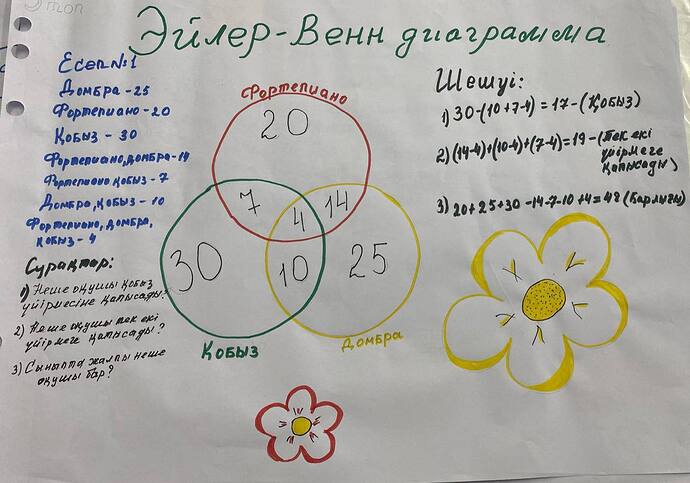 Этоп
Эйлер-Венн диограмма
Есеп №1
Домбра - 25
Фортепиано - 20
Қобыз - 30
Фортепиано, домбра - 14
Фортепиано қобыз - 7
Домбра, қобыз - 10
Фортепиано, домбра,
қобыз - 4
Сұрақтар:
1) Неше оқушы қобыз
үйірмесіне қатысады?
2) Неше оқушы тек екі
үйірмеге қатысады?
3) Сыныпта жалпы неше
оқушы бар?
Фортепиано
20
7
4
14
30
10
25
Қобыз
Домбра
Шешуі:
1) 30-(10+7-4) = 17 - (Қобыз)
2) (14-4)+(10-4)+(7-4)=19 - (тек екі
үйірмеге
қатысады)
3) 20+25+30-14-7-10+4=48 (барлығы)